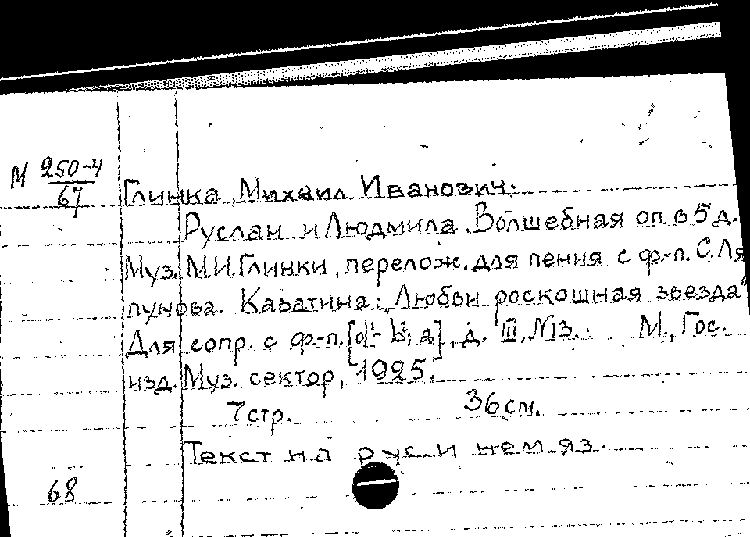 М 250-4
67
Глинка, Михаил Иванович.
Руслан и Людмила. Волшебная оп. в 5 д.
Муз. М.И. Глинки, перелож. для пения с ф-п. С. Ля
пунова. Каватина: "Любви роскошная звезда"
Для сопр. с ф-п. д. III, №13. М., Гос.
изд. Муз. сектор, 1925.
7 стр. 36 см.
Текст на рус. и нем. яз.
68